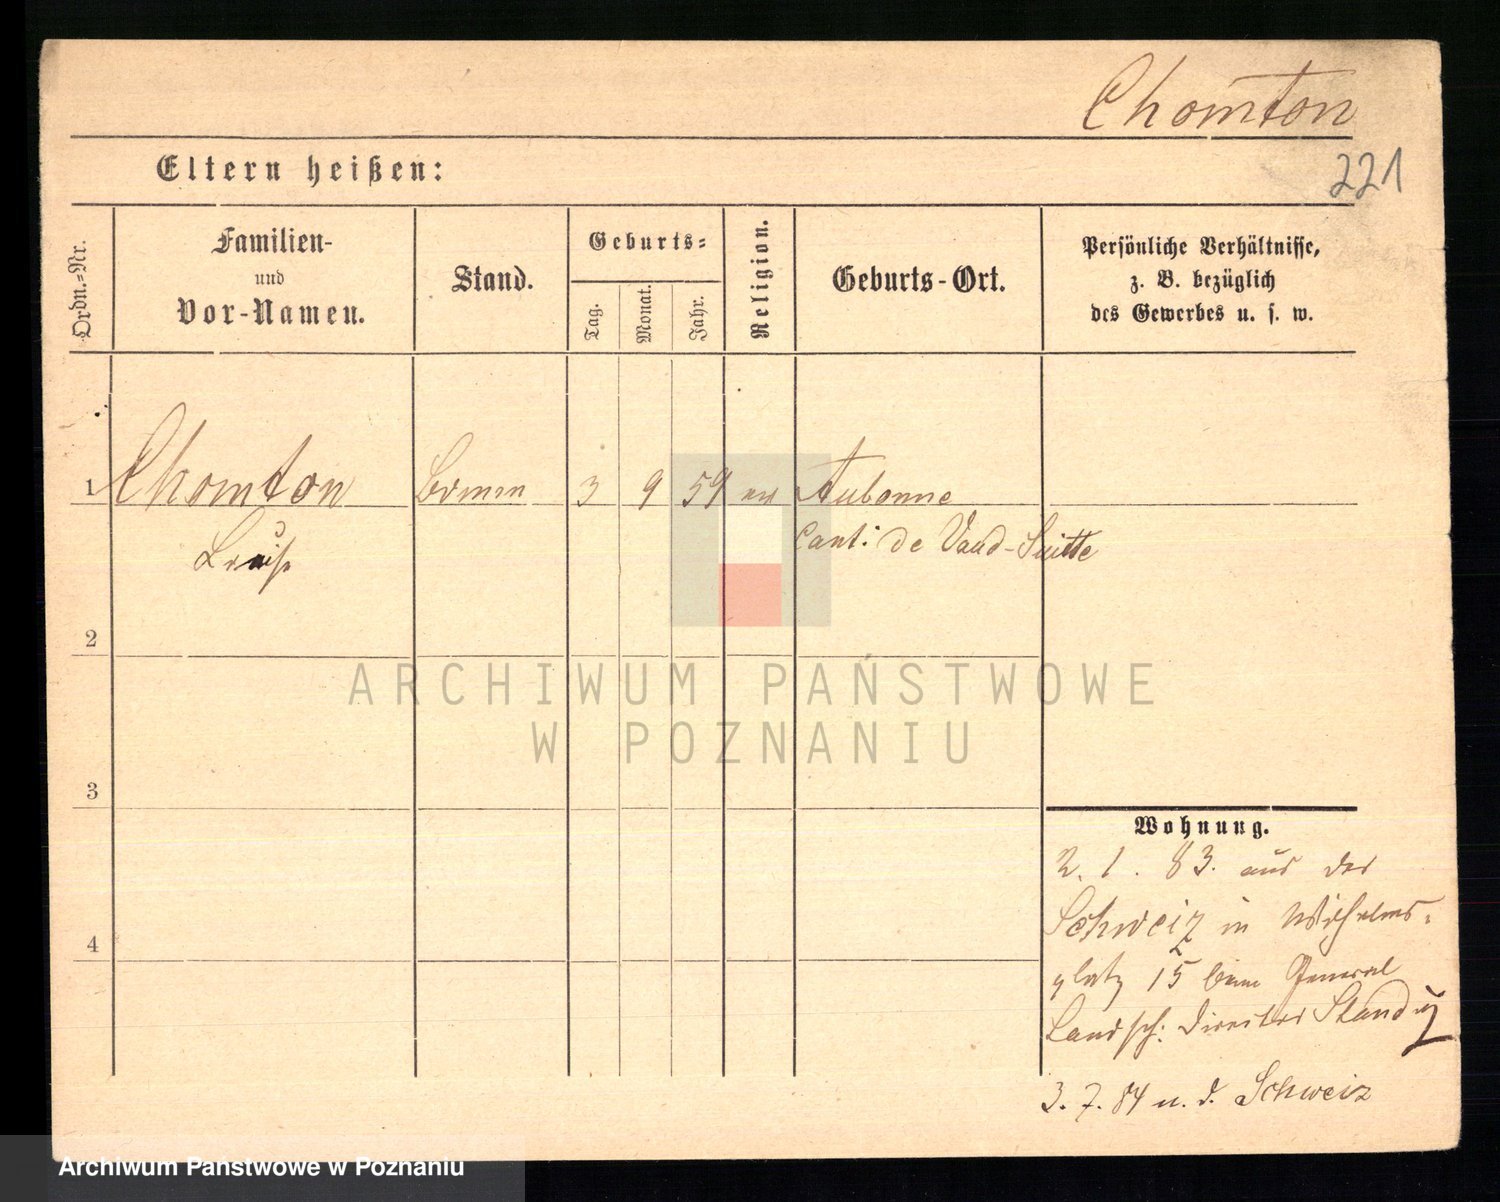 Chomton
221
Eltern heißen:
Ordn.-Nr.
Familien-
und
Vor-Namen.
Stand.
Geburts-
Tag.
Monat.
Jahr.
Religion.
Geburts-Ort.
Persönliche Verhältnisse,
z. B. bezüglich
des Gewerbes u. s. w.
1 Chomton Bonne 3 9 59 ev Aubonne
Louise Cant: de Vaud-Suitte
2
3
4
Wohnung.
2. 1. 83. aus der
Schweiz in Wilhelms-
platz 15 beim General
Landsch: Director Staudy
3. 7. 84 n. d. Schweiz
ARCHIWUM PAŃSTWOWE
W POZNANIU
Archiwum Państwowe w Poznaniu